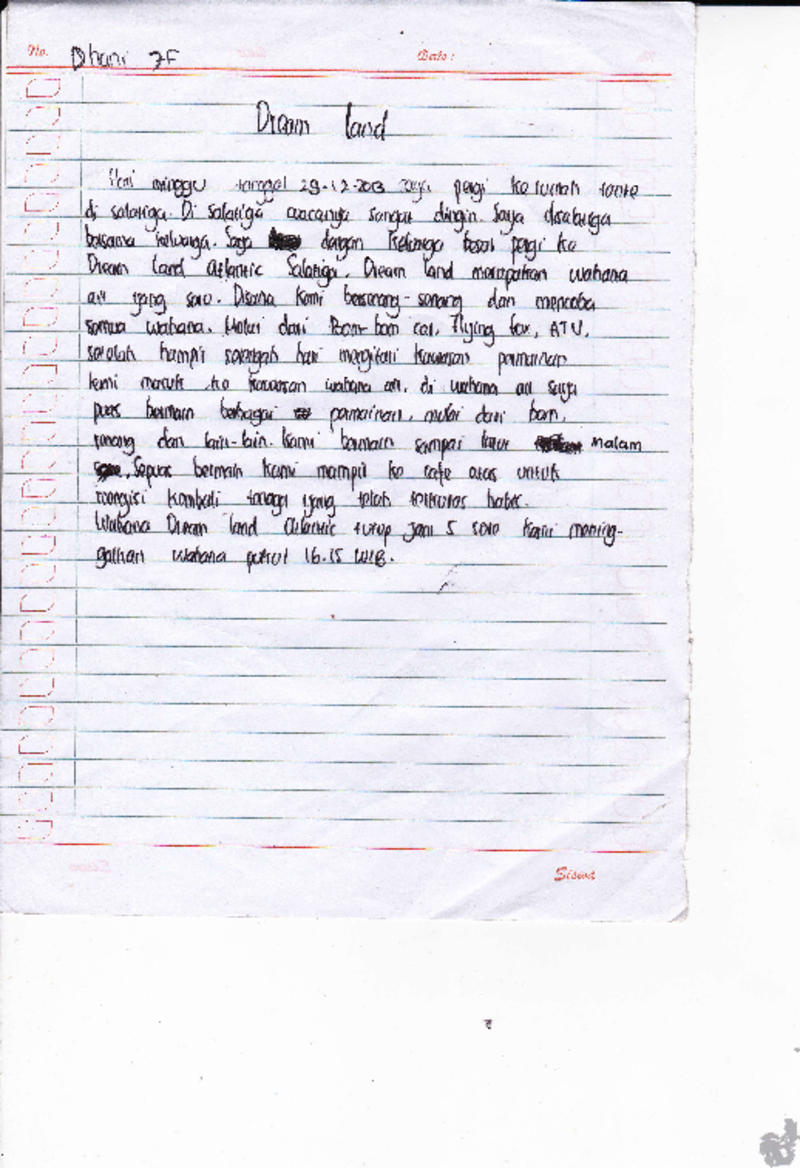 No. Dhani 7F Date:
Dream land
Hari minggu tanggal 29-12-2013 saya pergi ke rumah tante
di salatiga. Di salatiga cuacanya sangat dingin. Saya disalatiga
bersama keluarga. Saya dengan keluarga besar pergi ke
Dream land Atlantic Salatiga. Dream land merupakan wahana
air yang seru. Disana kami bersenang-senang dan mencoba
semua wahana. Mulai dari Bom-bom car, Flying fox, ATV.
setelah hampir setengah hari mengitari kawasan permainan
kami masuk ke kawasan wahana air. di wahana air saya
puas bermain berbagai permainan. mulai dari ban,
renang dan lain-lain. kami bermain sampai larut malam
Sepuas bermain kami mampir ke cafe atas untuk
mengisi kembali tenaga yang telah terkuras habis.
Wahana Dream land Atlantic tutup jam 5 sore kami mening-
galkan wahana pukul 16.15 WIB.
Siswa